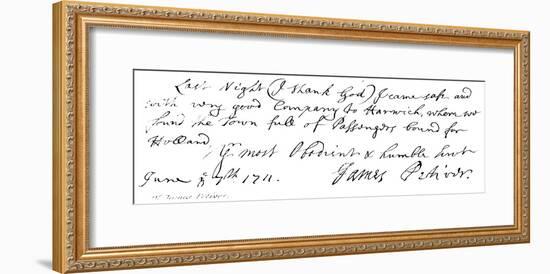 Last Night (I thank God) I came safe and
with very good Company to Harwich, where we
found the Town full of Passengers bound for
Holland
Yr most Obedient & humble Servt
June ye 7th 1711. James Petiver.
James Petiver.